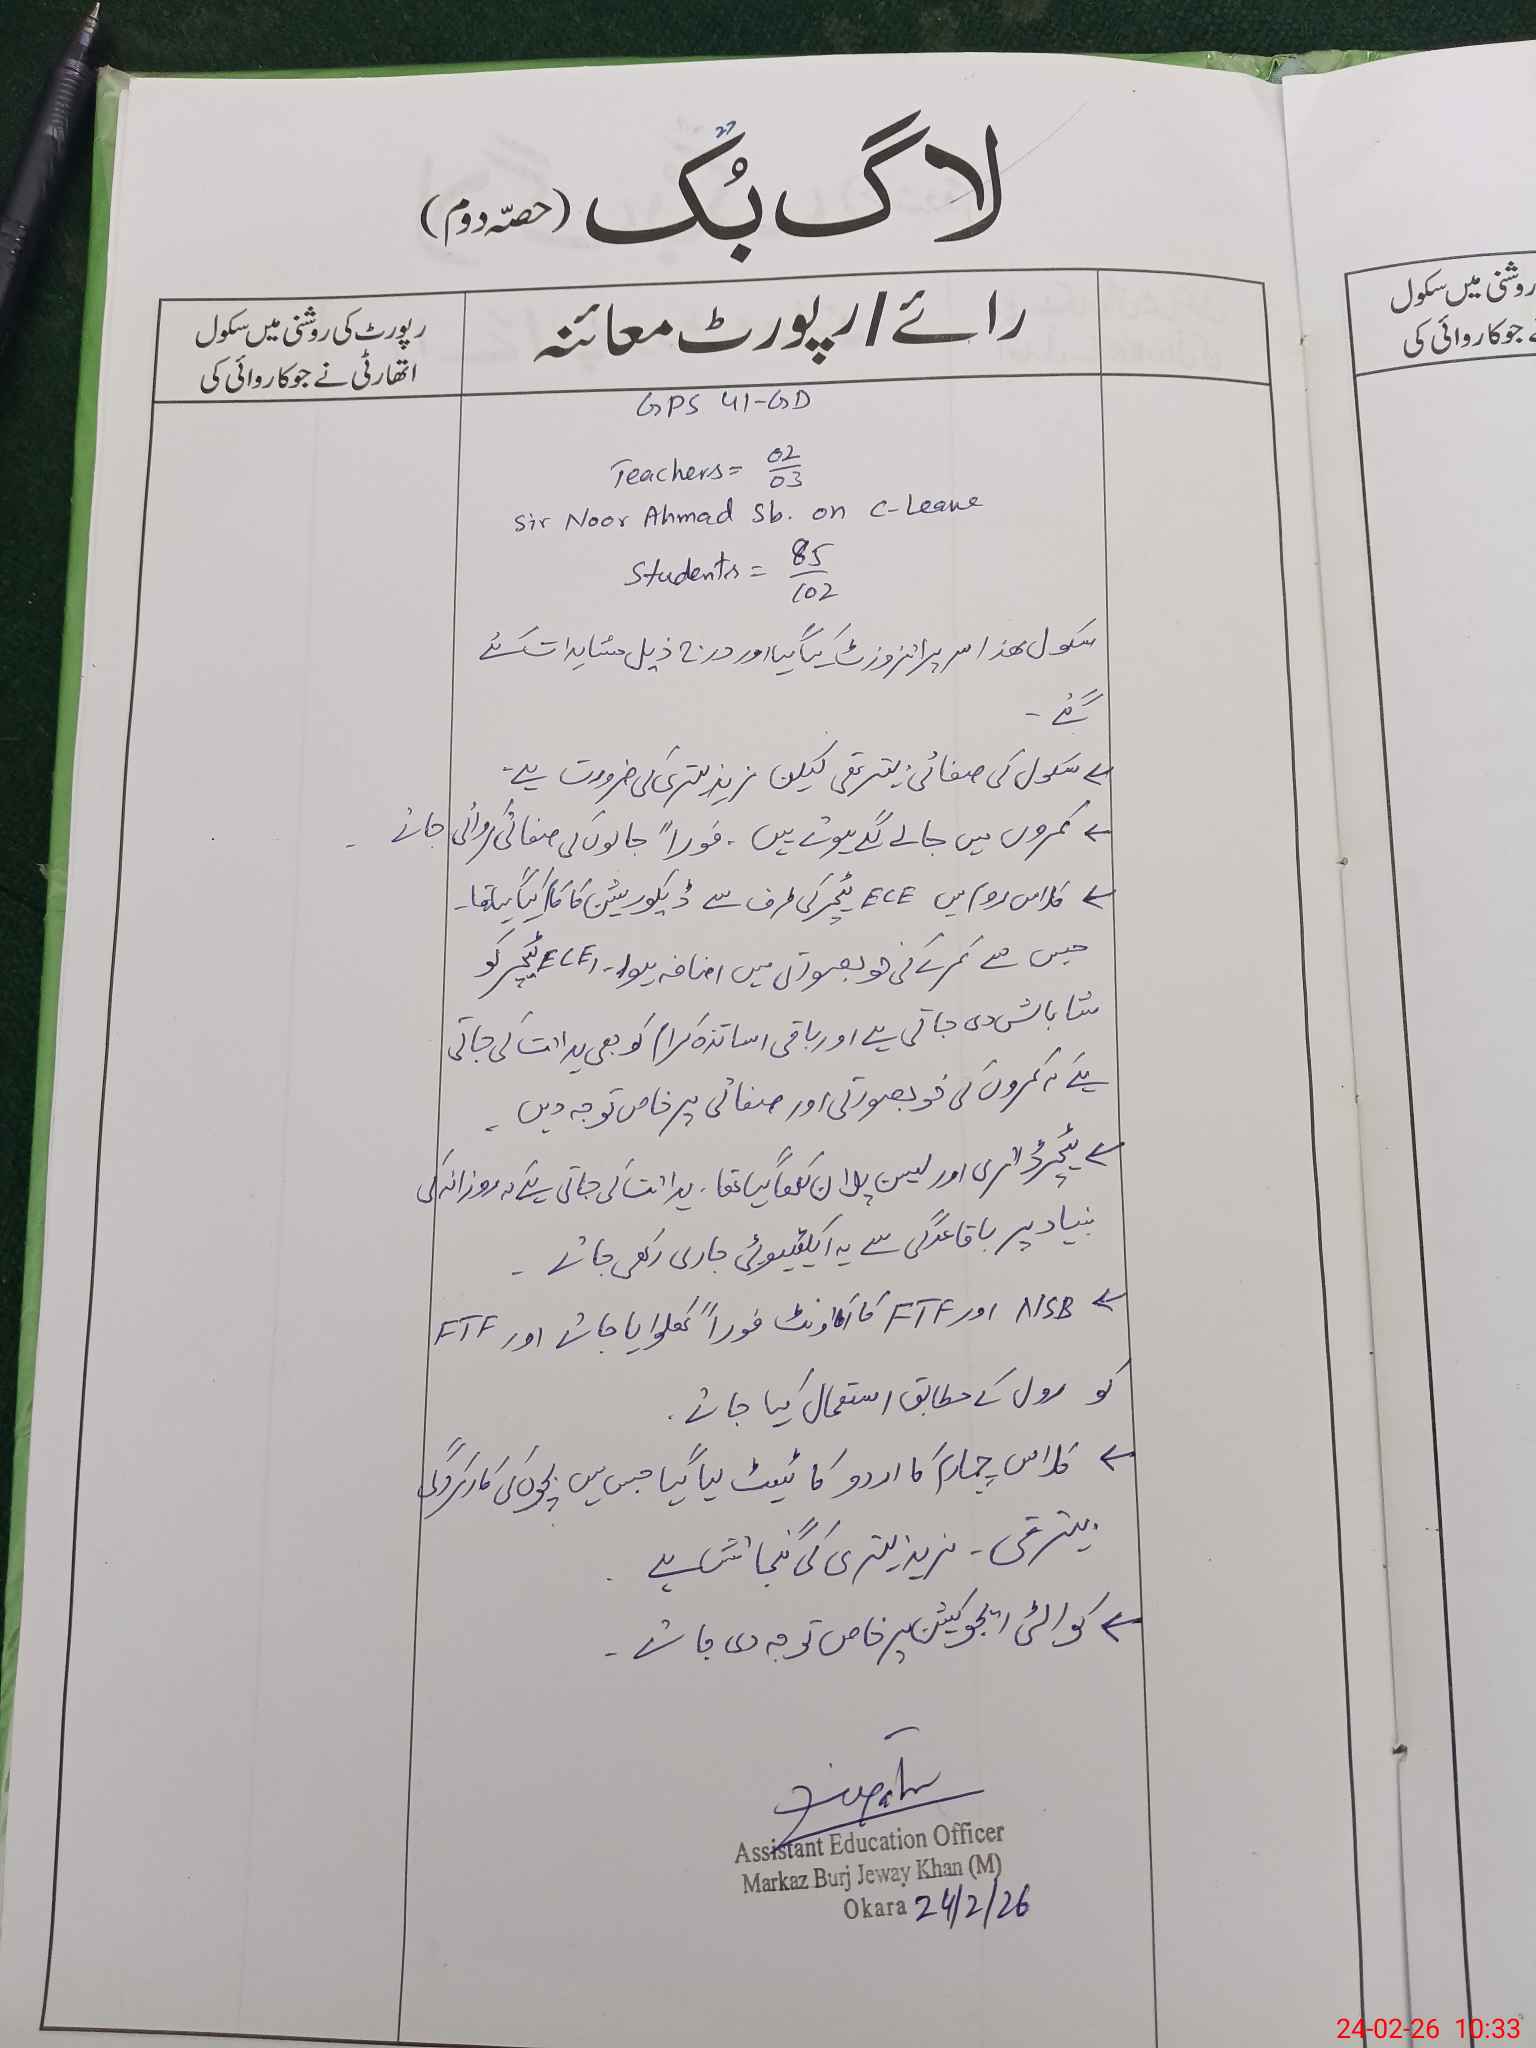 27
لاگ بُک (حصّہ دوم)
رائے / رپورٹ معائنہ
رپورٹ کی روشنی میں سکول
اتھارٹی نے جو کاروائی کی
روشنی میں سکول
نے جو کاروائی کی
GPS 41-GD
Teachers = 02/03
Sir Noor Ahmad Sb. on C-Leave
Students = 85/102
سکول ھذا سرپرائز وزٹ کیا گیا اور درج ذیل مشاہدات کئے
گئے -
← سکول کی صفائی بہتر تھی لیکن مزید بہتری کی ضرورت ہے -
← کمروں میں جالے لگے ہوئے ہیں - فوراً جالوں کی صفائی کروائی جائے -
← کلاس روم میں ECE ٹیچر کی طرف سے ڈیکوریشن کا کام کیا گیا تھا -
جس سے کمرے کی خوبصورتی میں اضافہ ہوا - ECE ٹیچر کو
شاباش دی جاتی ہے اور باقی اساتذہ کرام کو بھی ہدائت کی جاتی
ہے کہ کمروں کی خوبصورتی اور صفائی پر خاص توجہ دیں -
← ٹیچر ڈائری اور لیسن پلان لکھا گیا تھا - ہدائت کی جاتی ہے کہ روزانہ کی
بنیاد پر باقاعدگی سے یہ ایکٹیویٹی جاری رکھی جائے -
← NSB اور FTF کا اکاونٹ فوراً کھلوایا جائے اور FTF
کو رول کے مطابق استعمال کیا جائے -
← کلاس چہارم کا اردو کا ٹیسٹ لیا گیا جس میں بچوں کی کارکردگی
بہتر تھی - مزید بہتری کی گنجائش ہے -
← کوالٹی ایجوکیشن پر خاص توجہ دی جائے -
Assistant Education Officer
Markaz Burj Jeway Khan (M)
Okara 24/2/26
24-02-26 10:33